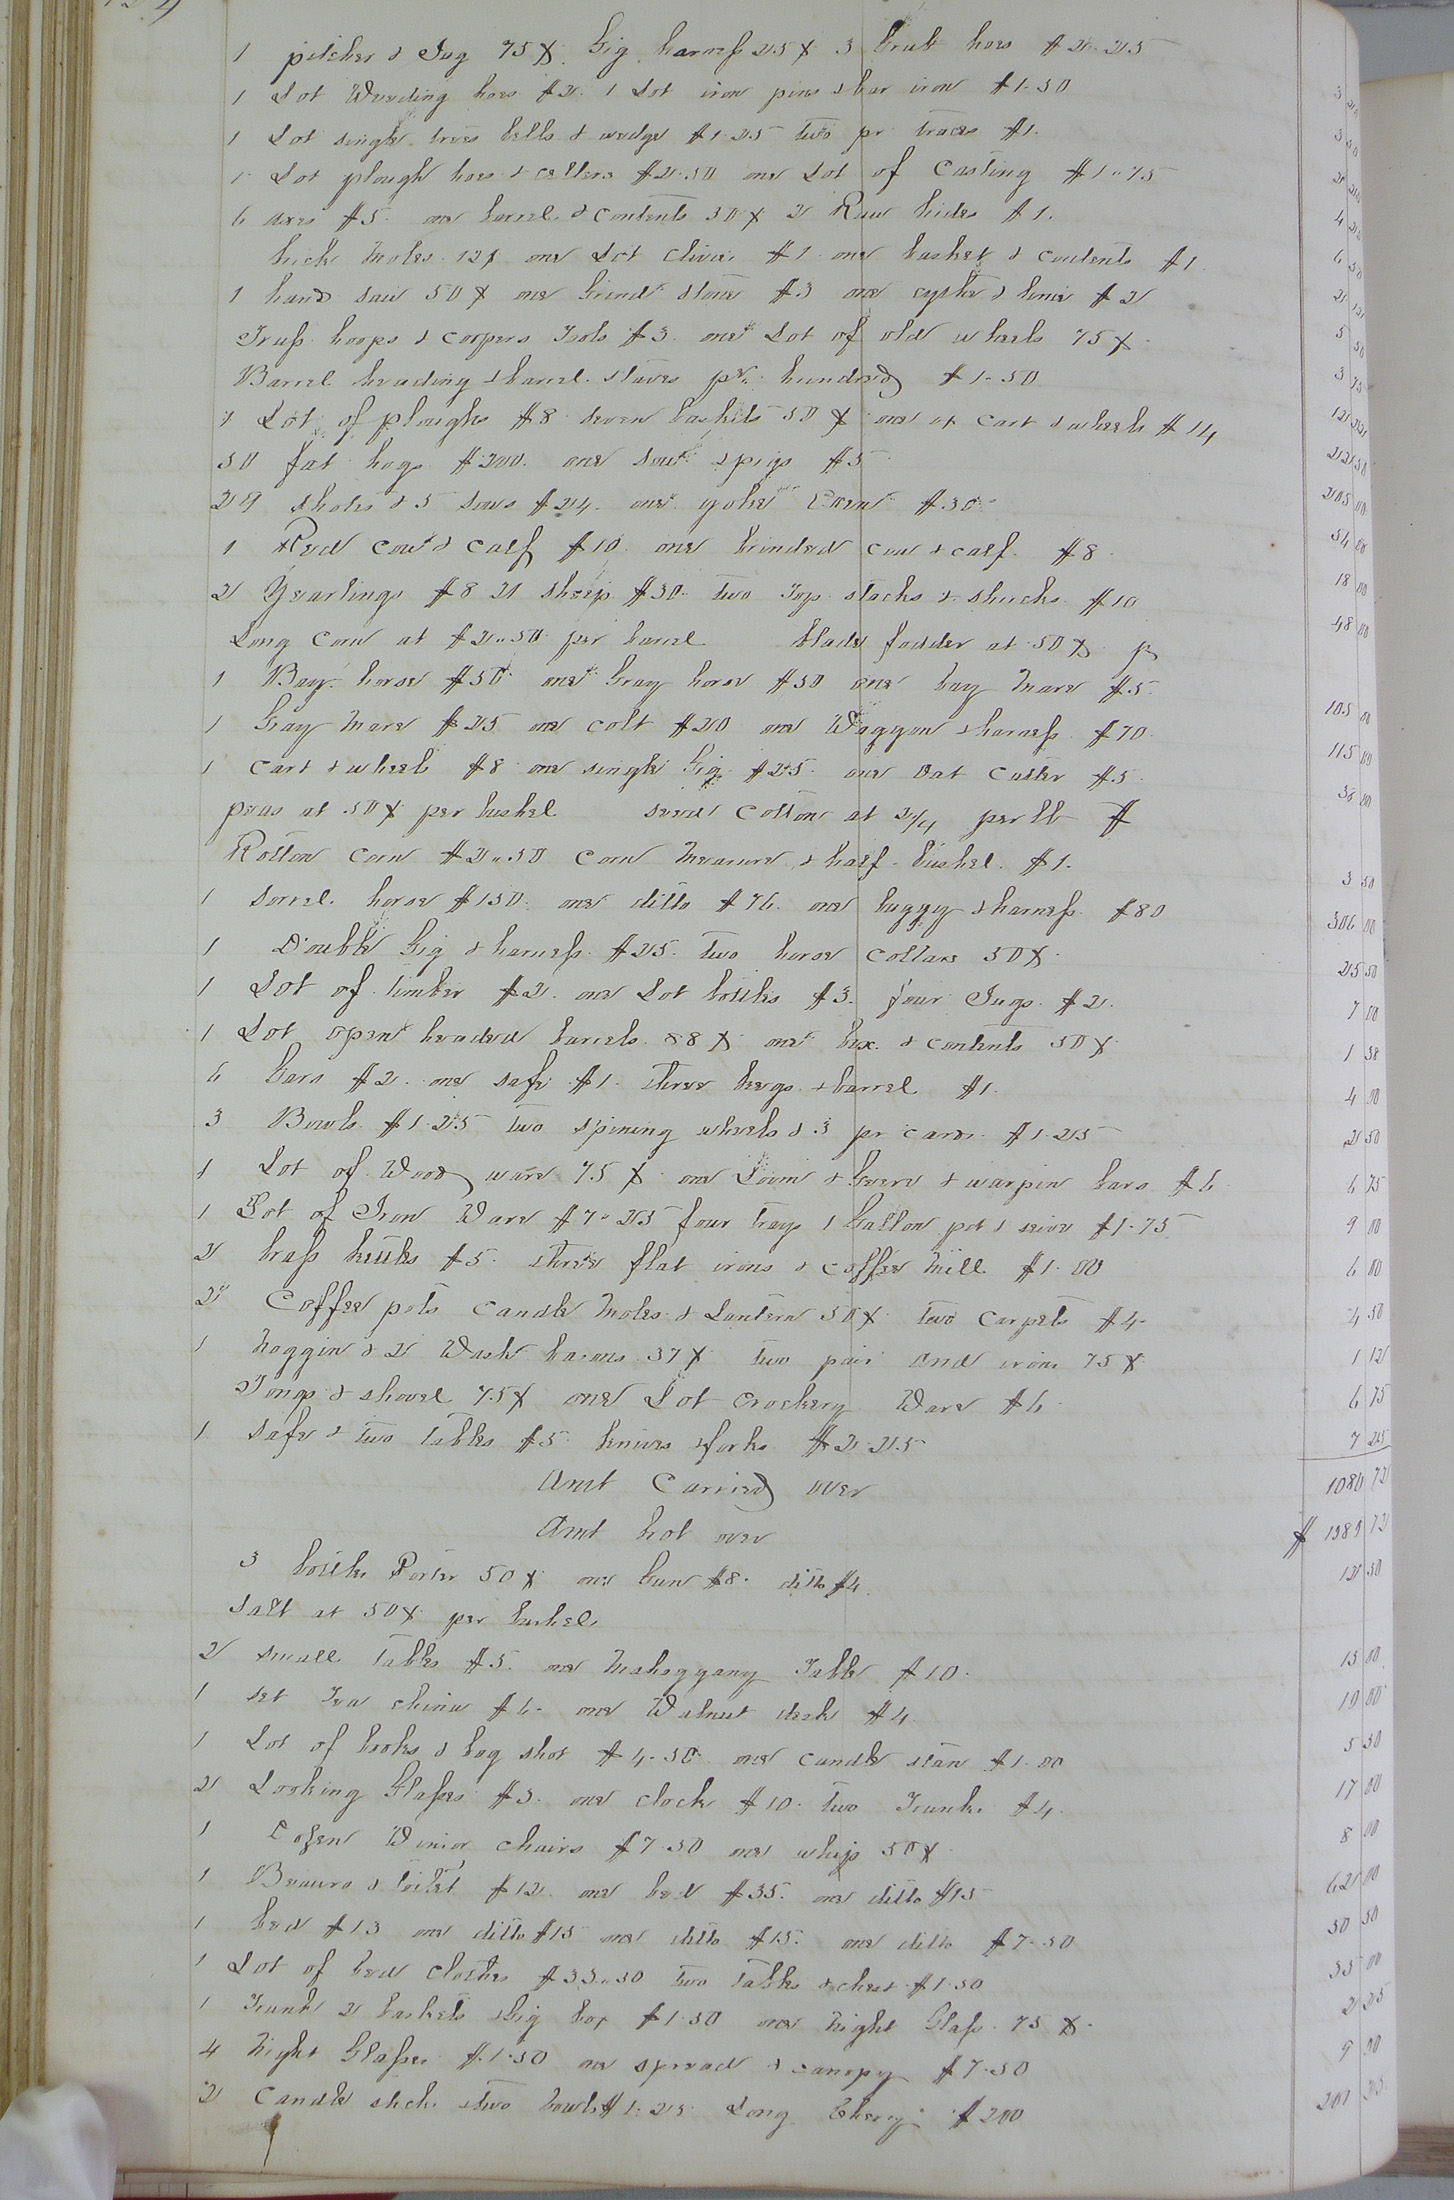 1 pitcher & Jug 75¢ Gig harness 25¢ 3 Grub hoes $2.25 3 25
1 Lot Weeding hoes $2. 1 Lot iron pins & bar iron $1.50 3 50
1 Lot single trees bells & wedge $1.25 two pr traces $1. 2 25
1 Lot plough hoes & cutters $2.50 one Lot of Casting $1.75 4 25
6 axes $5. one barrel & contents 50¢ 2 Raw hides $1. 6 50
brick moles 12¢ one Lot clivis $1 one basket & contents $1 2 12
1 hand saw 50¢ one Grind stone $3 one cyth & $2 5 50
Truss hoops & coopers Tools $3. one Lot of old wheels 75¢ 3 75
Barrel heading & barrel staves pr. hundred $1.50
1 Lot of ploughs $8 seven baskets 50¢ one ox cart & wheels $14 22 50
50 fat hogs $200. one sow & pigs $5 205 00
29 shotes & 5 sows $24. one yoke Oxen $30 54 00
1 Red cow & calf $10. one brinded cow & calf. $8 18 00
2 Yearlings $8 21 sheep $30 two Top stacks & shucks $10 48 00
Long Corn at $2.50 per barrel blade fodder at 50¢ p
1 Bay horse $50 one Gray horse $50 one bay mare $5. 105 00
1 Gray mare $25 one colt $20 one Waggon & harness $70 115 00
1 cart & wheels $8 one single Gig $25. one oat cutter $5 38 00
peas at 50¢ per bushel seed cotton at 2/4 per lb $
Rotton corn $2.50 corn measure & half bushel $1. 3 50
1 Sorrel horse $150. one ditto $76 one buggy & harness $80 306 00
1 Double Gig & harness $25. two horse collars 50¢ 25 50
1 Lot of timber $2. one Lot bottles $3. four Jugs $2. 7 00
1 Lot open headed barrels 88¢ one box & contents 50¢ 1 38
6 Gars $2. one safe $1. three keegs & barrel $1. 4 00
3 Bowls $1.25 two spining wheels & 3 pr cards $1.25 2 50
1 Lot of Wood ware 75¢ one Loom & Geers & warpin bars $6 6 75
1 Lot of Iron Ware $7.25 four trays 1 Gallon pot & seive $1.75 9 00
2 brass kettles $5. three flat irons & coffee mill $1.00 6 00
2 Coffee pots candle moles & Lantern 50¢ two carpets $4. 4 50
1 noggin & 2 Wash basons 37¢ two pair and irons 75¢ 1 12
Tongs & shovel 75¢ one Lot crockery Ware $6 6 75
1 safe & two tables $5 knives & forks $2.25 7 25
Amt Carried over 1080 72
Amt bot over $ 1389 72
3 bottles Porter 50¢ one Gun $8. ditto $4. 12 50
Salt at 50¢ per bushel
2 small tables $5. one Mahoggany Table $10. 15 00
1 set Tea china $6. one Walnut desk $4. 10 00
1 Lot of books & bag shot $4.50 one candle stan $1.00 5 50
2 Looking Glasses $3. one clock $10. two Trunks $4. 17 00
1 Dozen Winsor chairs $7.50 one whip 50¢ 8 00
1 Beauro & toilet $12. one bed $35. one ditto $15 62 00
1 bed $13 one ditto $15 one ditto $15. one ditto $7.50 50 50
1 Lot of bed clothes $33.50 two tables & chest $1.50 35 00
1 Trunk 2 baskets & big box $1.50 one night Glass 75¢ 2 25
4 night Glasses $1.50 one spread & canopy $7.50 9 00
2 Candle sticks & two bowls $1.25 Long $200 201 25